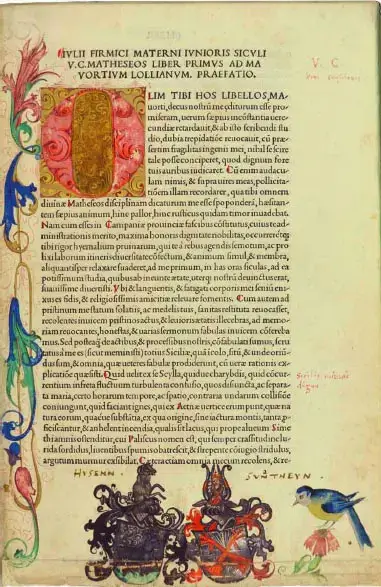 IVLII FIRMICI MATERNI IVNIORIS SICVLI
V.C. MATHESEOS LIBER PRIMVS AD MA
VORTIVM LOLLIANVM. PRAEFATIO.
V. C
OLIM TIBI HOS LIBELLOS, MA
uorti, decus nostrũ me editurum esse pro-
miseram, uerum sæpius inconstantia uere-
cundiæ retardauit, & ab isto scribendi stu
dio, dubia trepidatiõe reuocauit, cũ præ-
sertim fragilitas ingenii mei, nihil se scire
tale posse conciperet, quod dignum fore
tuis auribus iudicaret. Cũ enim audacu-
lam nimis, & supra uires meas, pollicita-
tiõem illam recordarer, qua tibi omnem
diuinæ Matheseos disciplinam dicaturum me esse spopõderã, hæsitan-
tem sæpius animum, hinc pallor, hinc rusticus quidam timor inuadebat.
Nam cum esses in Campaniæ prouinciæ fascibus cõstitutus, cuius te ad-
ministrationis merito, maxima honoris dignitate nobilitas, occurrere
tibi rigor hyemalium pruinarum, qui te a rebus agendis remotum, ac pro
lixi laborum itineris diuersitate cõfectum, & animum simul, & membra,
aliquatisper relaxare suaderet, ad me primum, in has oras siculas, ad ex
potissimum studia, quibus ab ineunte ætate, uterq; nostrũ deuinctus erat,
suauissime diuertisti. Vbi & languentis, & fatigati corporis mei senti en-
xus es fidis, & religiosissimis amicitiæ releuare fomentis. Cum autem ad
pristinum me statum solatiis, ac medelis tuis, sanitas restituta reuocasset,
recolentes inuicem pristinos actus, & leuioris ætatis illecebras, ad memo-
riam reuocantes, honestas, & uarias sermonum fabulas inuicem cõfereba
mus. Sed postea q̃ de actibus, & processibus nostris, cõfabulati sumus,
tatus a me es (si cur memini) totius Siciliæ, quã icola, & unde oriũ-
dus sim, & omnia, quæ ueteres fabulæ prodiderunt, cũ ueræ rationis ex-
plicatiõe quæsisti. Quid uelit ex se Scylla, quid uecharybdis, quid cõcur-
rentium infreta fluctuum turbulenta confusio, quos disiuncta, ac separa-
ta maria, certo horarum tempore, ac spatio, contraria undarum collisiõe
coniungunt, quid faciant ignes, qui ex Aetnæ uertice erumpunt, quæ na
tura eorum, quæ ue substãtia, ex qua origine, sine iactura montis, tanta,
scãtur, & anhelent incendia, qualis sit lacus, qui prope alueum Sime
thi amnis ostenditur, cui Paliscus nomen est, qui semper crassitudine lu-
rida sordidus, liuentibus spumis obatrescit, & strepente cõiugio stridulus,
argutum murmur exsibilat. Cæterætiam omnia mecum recolens, & re-